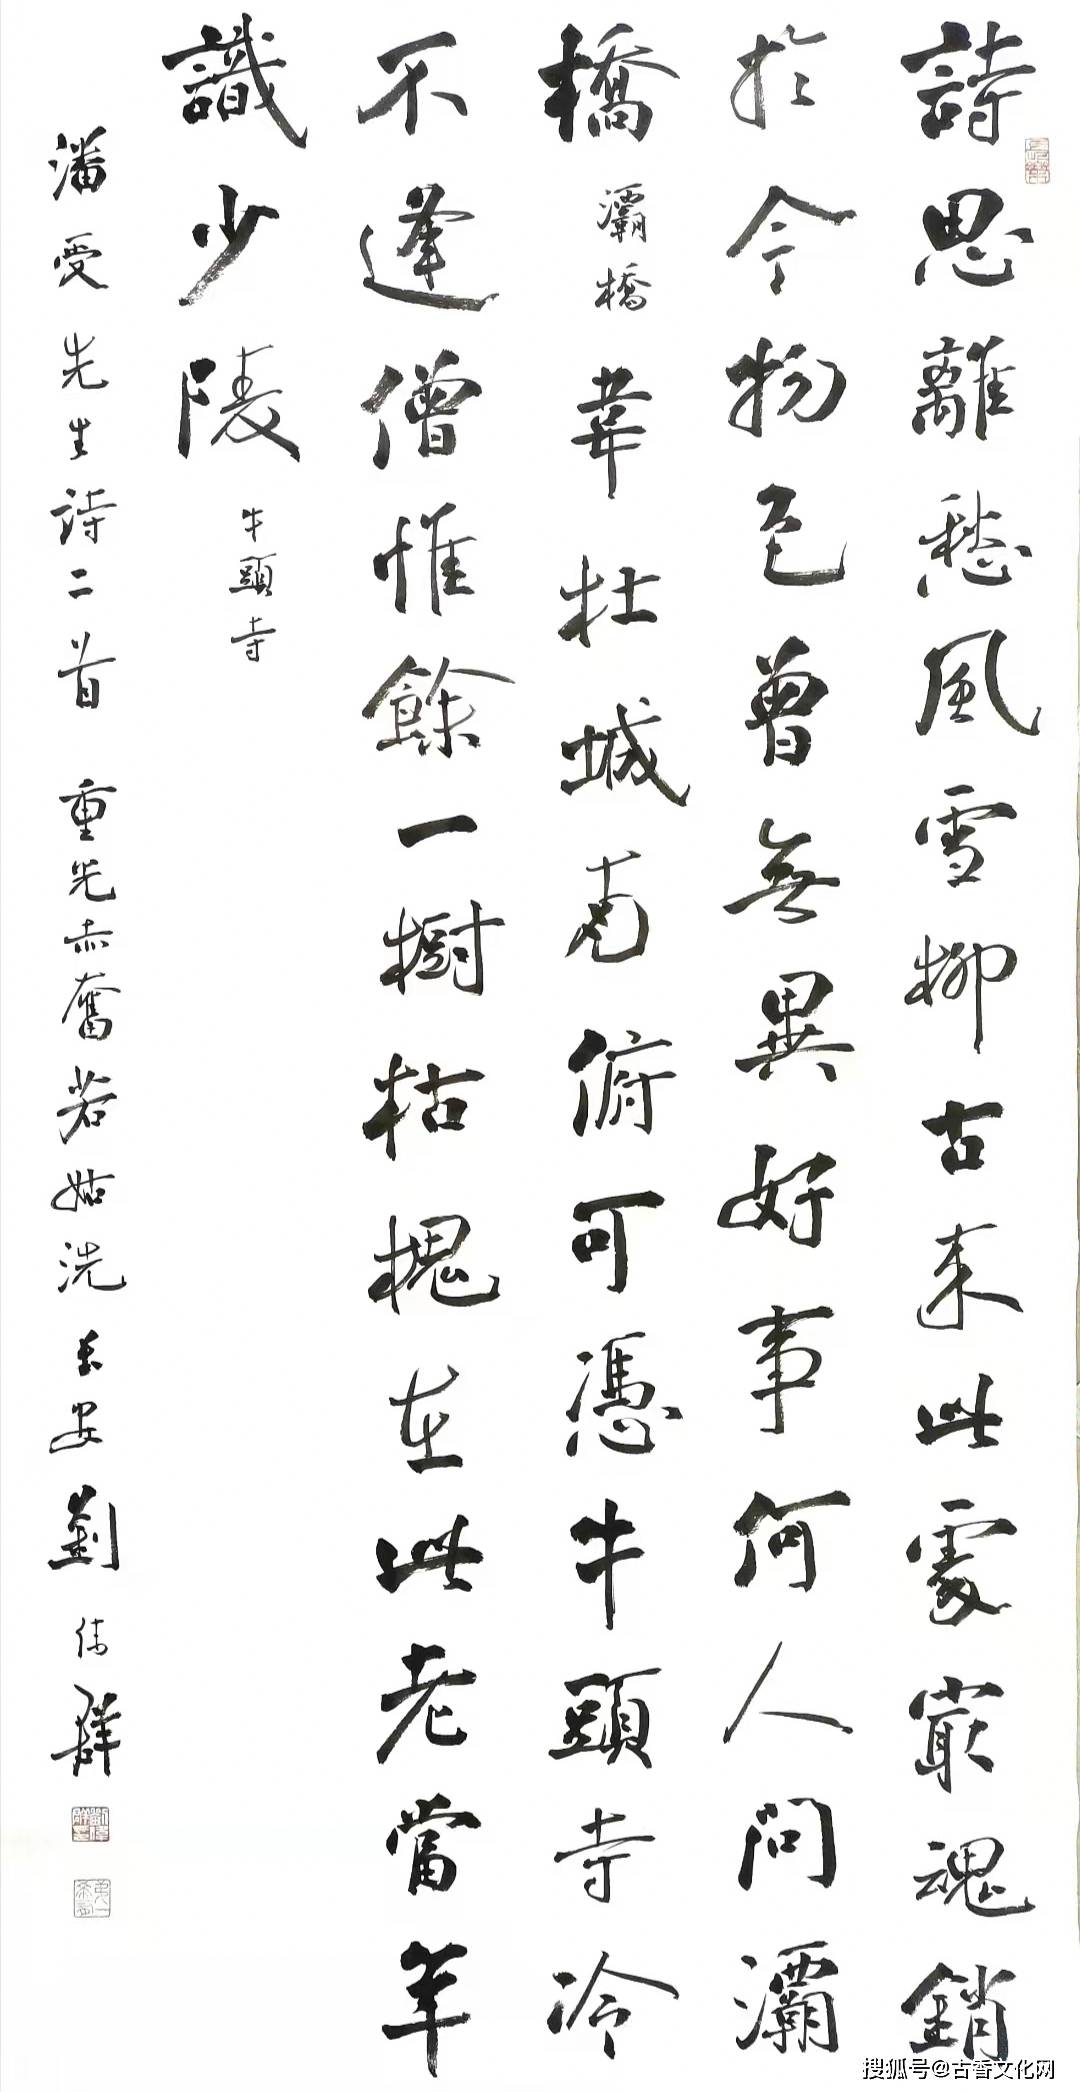 詩思離愁風雪柳古来此處最魂銷
於今物色曾無異好事何人問灞
橋灞橋韋杜城南俯可憑牛頭寺冷
不逢僧惟餘一樹枯槐在此老當年
識少陵牛頭寺
潘受先生詩二首 重光赤奮若姑洗長安劉偉群
搜狐号@古香文化网